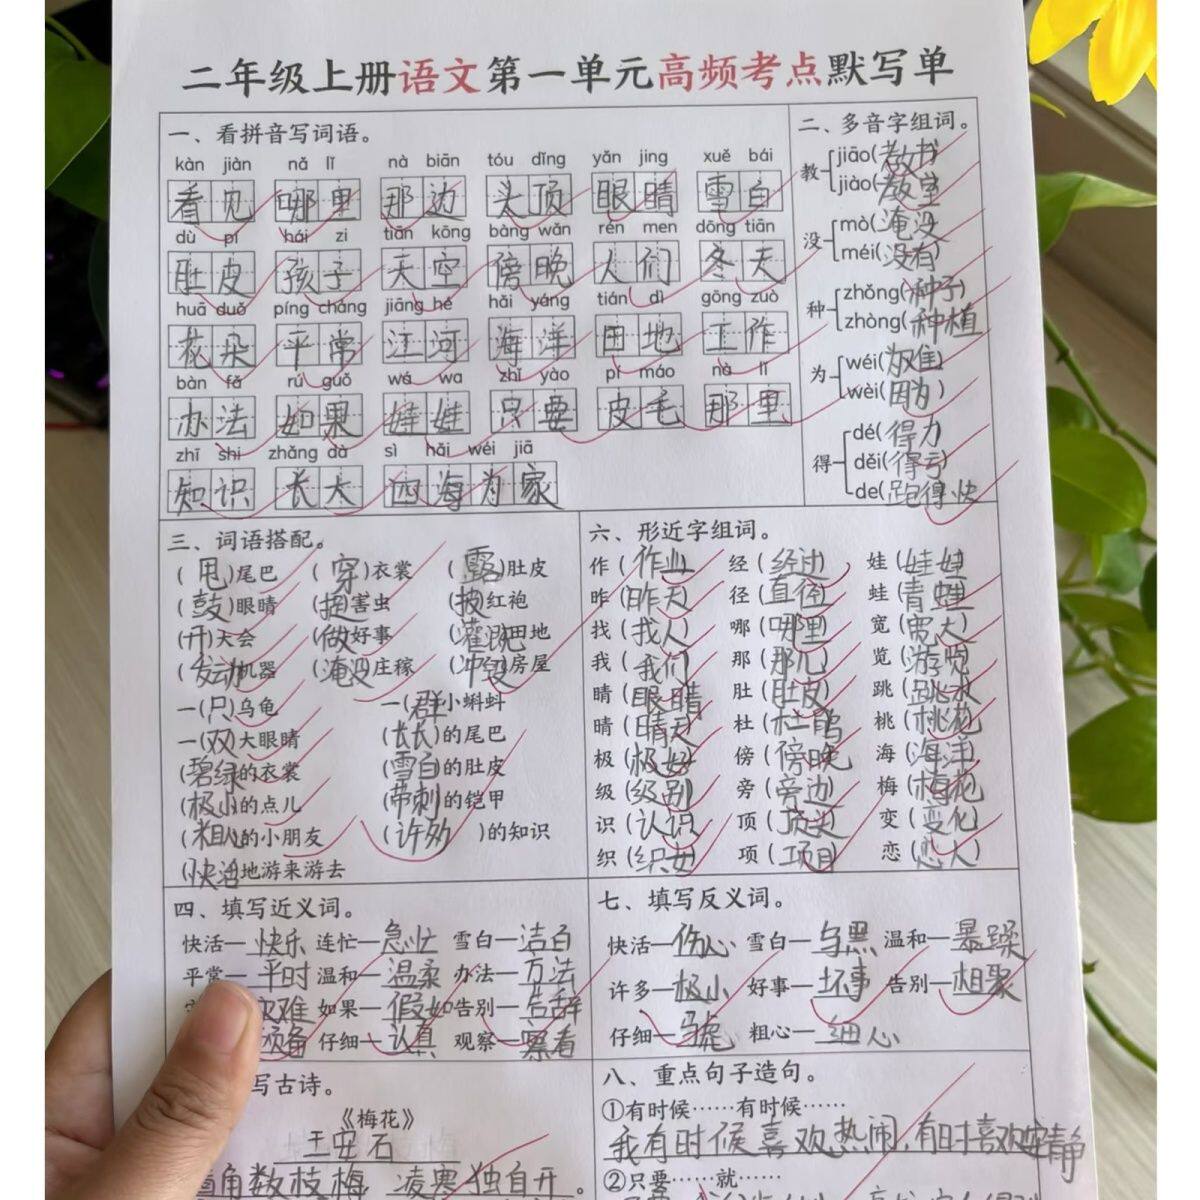 二年级上册语文第一单元高频考点默写单
一、看拼音写词语。
kàn jiàn nǎ lǐ nà biān tóu dǐng yǎn jing xuě bái
看见 哪里 那边 头顶 眼睛 雪白
dù pí hái zi tiān kōng bàng wǎn rén men dōng tiān
肚皮 孩子 天空 傍晚 人们 冬天
huā duǒ píng cháng jiāng hé hǎi yáng tián dì gōng zuò
花朵 平常 江河 海洋 田地 工作
bàn fǎ rú guǒ wá wa zhǐ yào pí máo nà lǐ
办法 如果 娃娃 只要 皮毛 那里
zhī shi zhǎng dà sì hǎi wéi jiā
知识 长大 四海为家
二、多音字组词。
教 jiāo(教书)
jiào(教室)
没 mò(淹没)
méi(没有)
种 zhǒng(种子)
zhòng(种植)
为 wéi(为难)
wèi(因为)
得 dé(得力)
děi(得亏)
de(跑得快)
三、词语搭配。
(甩)尾巴 (穿)衣裳 (露)肚皮
(鼓)眼睛 (捉)害虫 (披)红袍
(开)大会 (做)好事 (灌溉)田地
(发动)机器 (淹没)庄稼 (冲毁)房屋
一(只)乌龟 一(群)小蝌蚪
一(双)大眼睛 (长长)的尾巴
(碧绿)的衣裳 (雪白)的肚皮
(极小)的点儿 (带刺)的铠甲
(粗心)的小朋友 (许多)的知识
(快活)地游来游去
六、形近字组词。
作(作业) 经(经过) 娃(娃娃)
昨(昨天) 径(直径) 蛙(青蛙)
找(找人) 哪(哪里) 宽(宽大)
我(我们) 那(那儿) 览(游览)
睛(眼睛) 肚(肚皮) 跳(跳水)
晴(晴天) 杜(杜鹃) 桃(桃花)
极(极好) 傍(傍晚) 海(海洋)
级(级别) 旁(旁边) 梅(梅花)
识(认识) 顶(顶头) 变(变化)
织(织女) 项(项目) 恋(恋人)
四、填写近义词。
快活—快乐 连忙—急忙 雪白—洁白
平常—平时 温和—温柔 办法—方法
灾难 如果—假如 告别—告辞
预备 仔细—认真 观察—察看
七、填写反义词。
快活—伤心 雪白—乌黑 温和—暴躁
许多—极小 好事—坏事 告别—相聚
仔细—马虎 粗心—细心
写古诗。
《梅花》
王安石
墙角数枝梅 凌寒独自开。
八、重点句子造句。
①有时候……有时候……
我有时候喜欢热闹,有时喜欢安静
②只要……就……